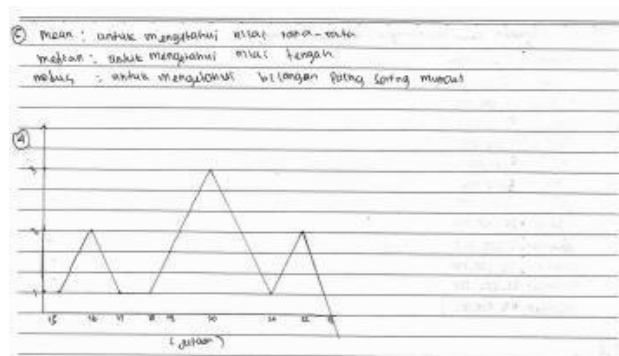 C mean : untuk mengetahui nilai rata-rata
median : untuk mengetahui nilai tengah
modus : untuk mengetahui bilangan paling sering muncul
4
3
2
1
15 16 17 18 19 20 21 22
(Jutaan)